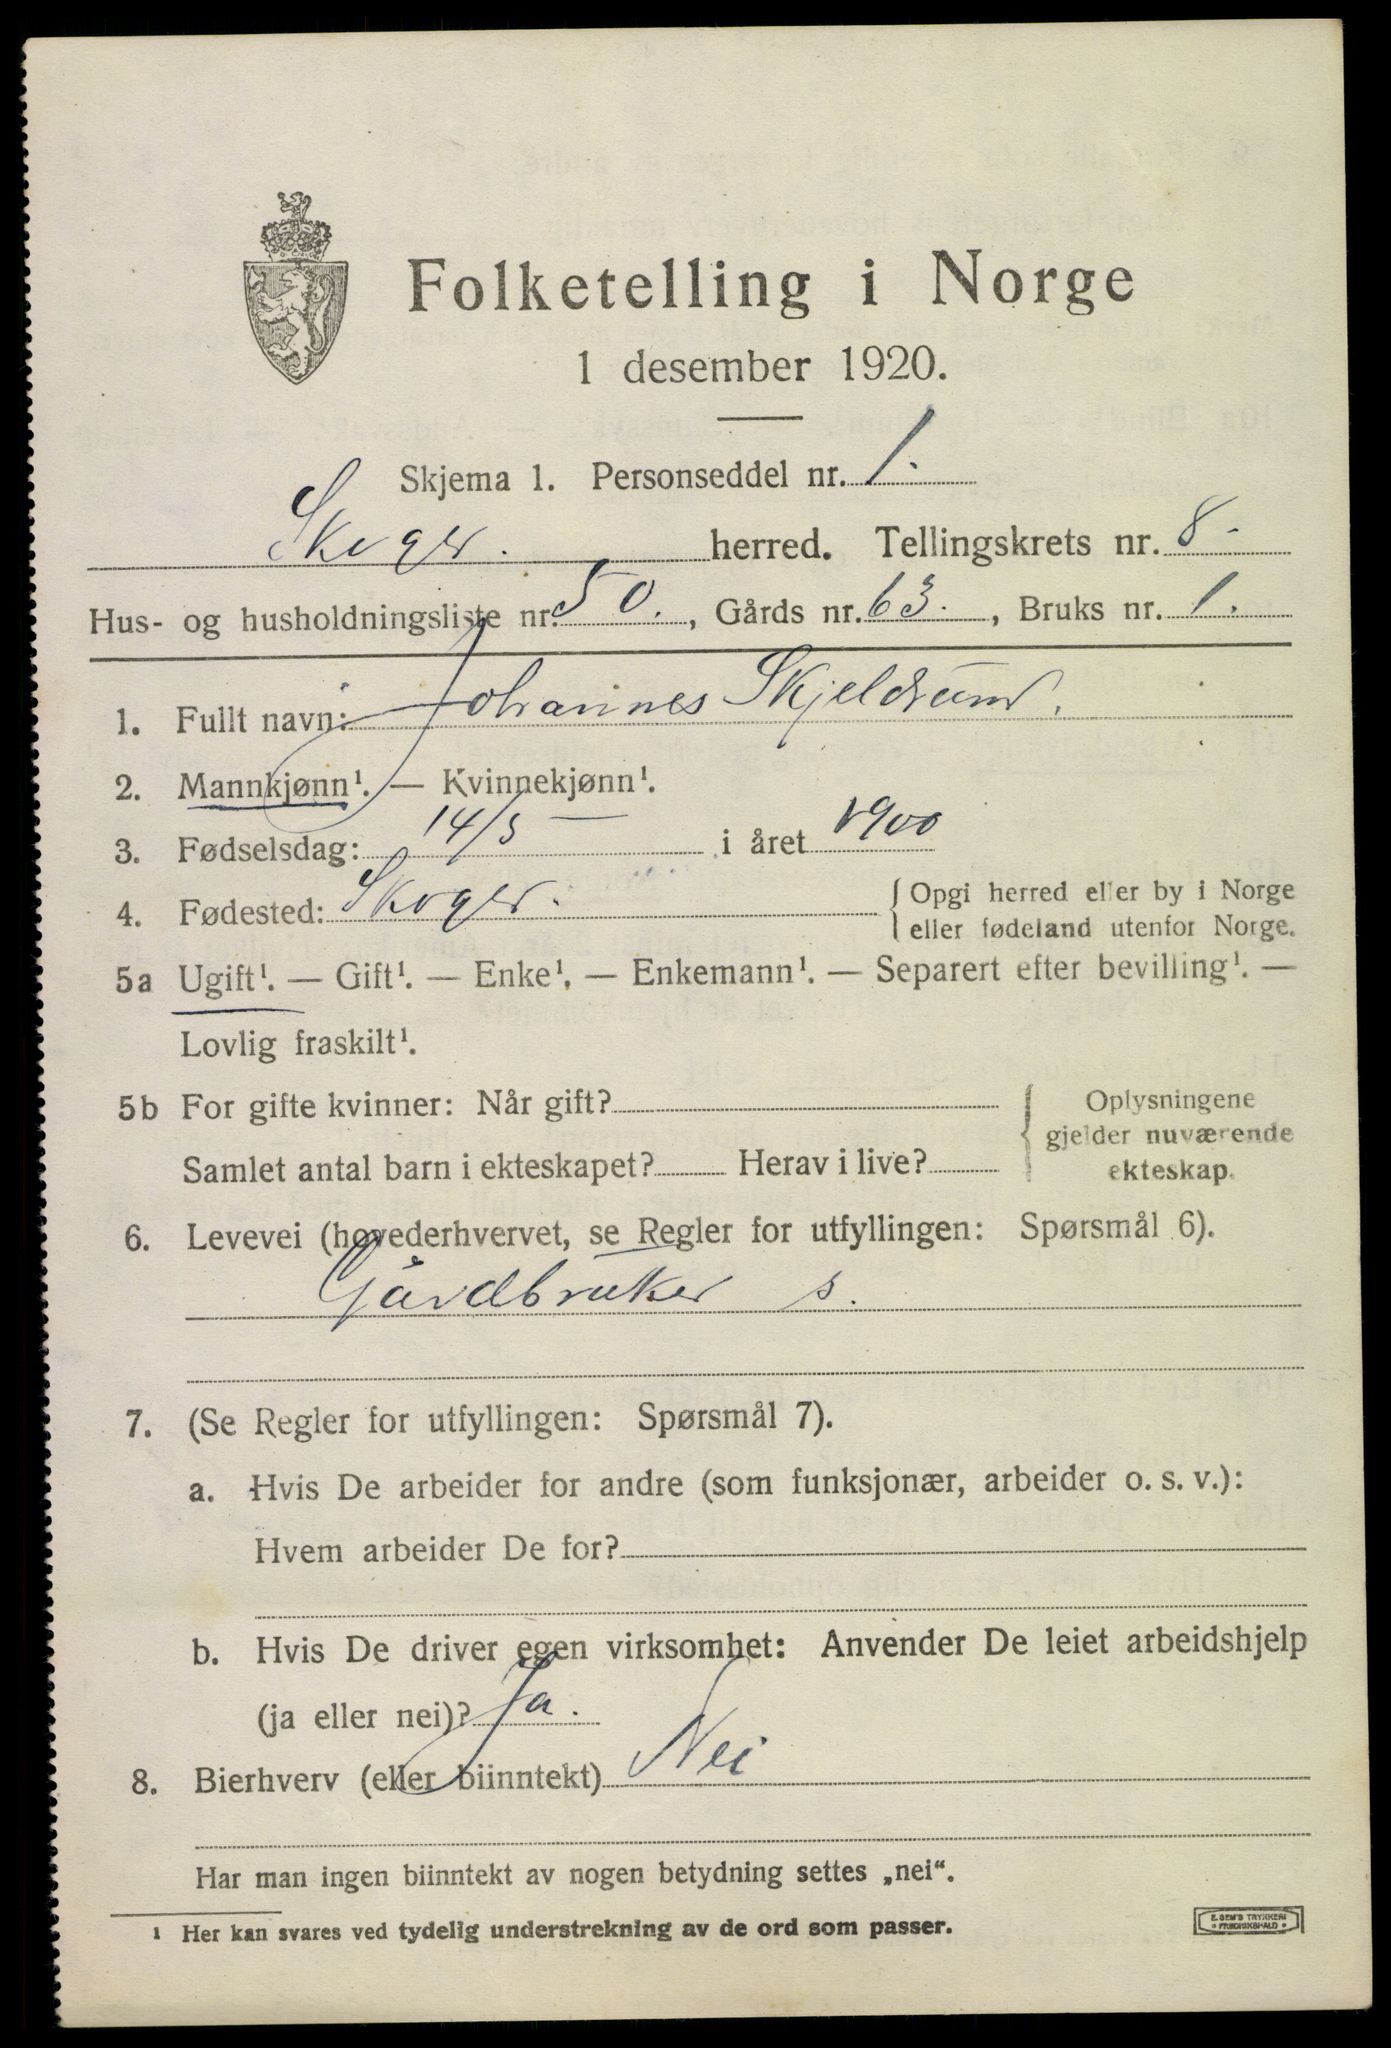 Folketelling i Norge
1 desember 1920.
Skjema 1. Personseddel nr. 1.
Skoger. herred. Tellingskrets nr. 8.
Hus- og husholdningsliste nr. 50., Gårds nr. 63., Bruks nr. 1.
1. Fullt navn: Johannes Skjeldrum.
2. Mannkjønn¹. — Kvinnekjønn¹.
3. Fødselsdag: 14/5 — i året 1900
4. Fødested: Skoger. { Opgi herred eller by i Norge
eller fødeland utenfor Norge.
5a Ugift¹. — Gift¹. — Enke¹. — Enkemann¹. — Separert efter bevilling¹. —
Lovlig fraskilt¹.
5b For gifte kvinner: Når gift? { Oplysningene
gjelder nuværende
Samlet antal barn i ekteskapet? Herav i live? ekteskap.
6. Levevei (hovederhvervet, se Regler for utfyllingen: Spørsmål 6).
Gårdbruker s.
7. (Se Regler for utfyllingen: Spørsmål 7).
a. Hvis De arbeider for andre (som funksjonær, arbeider o. s. v.):
Hvem arbeider De for?
b. Hvis De driver egen virksomhet: Anvender De leiet arbeidshjelp
(ja eller nei)? Ja.
8. Bierhverv (eller biinntekt) Nei
Har man ingen biinntekt av nogen betydning settes „nei“.
¹ Her kan svares ved tydelig understrekning av de ord som passer.
E. SEM'S TRYKKERI
FREDRIKSHALD